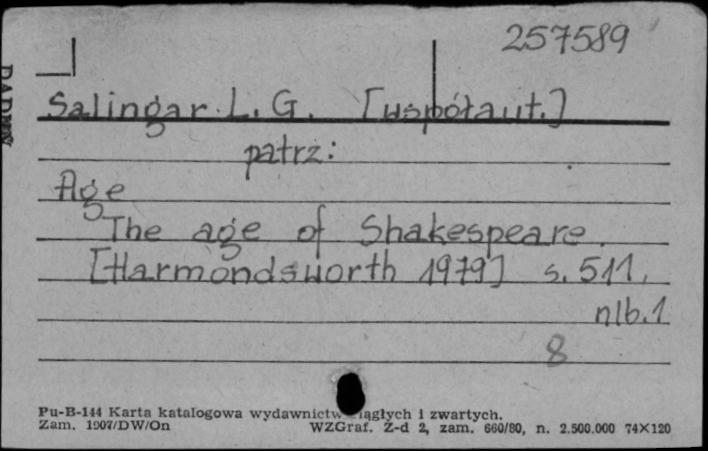 257589
Salingar L. G. [współaut.]
patrz:
Age
The age of Shakespeare.
[Harmondsworth 1979] s. 511,
nlb.1
8
Pu-B-144 Karta katalogowa wydawnictw ciągłych i zwartych.
Zam. 1907/DW/On WZGraf. Z-d 2, zam. 660/80, n. 2.500.000 74×120